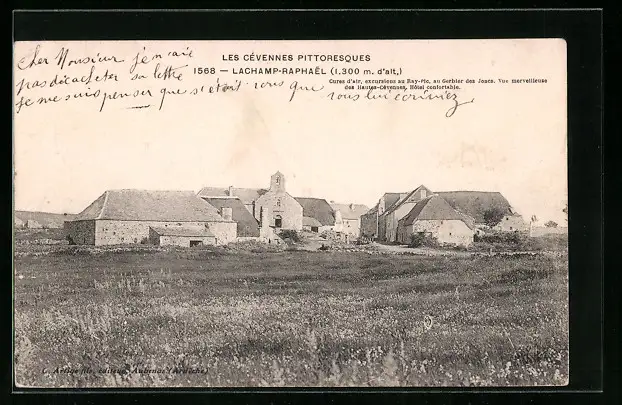 Cher Monsieur, j'en n'aie
pas décacheter sa lettre
je me suis penser que s'était vous que
vous lui écriviez
LES CÉVENNES PITTORESQUES
1568 — LACHAMP-RAPHAËL (1.300 m. d'alt,)
Cures d'air, excursions au Ray-Pic, au Gerbier des Joncs. Vue merveilleuse
des Hautes-Cévennes. Hôtel confortable.
C. Artige fils, éditeur, Aubenas (Ardèche)